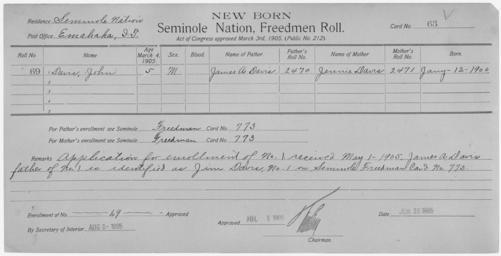 NEW BORN
Residence, Seminole Nation
Seminole Nation, Freedmen Roll.
Card No. 63
Post Office, Emahaka, I.T.
Act of Congress approved March 3rd, 1905, (Public No. 212).
Roll No. Name Age March 4, 1905 Sex. Blood. Name of Father Father's Roll No. Name of Mother Mother's Roll No. Born.
69 Davis, John 5 M James A Davis 2470 Jennie Davis 2471 Jany-12-1900
For Father's enrollment see Seminole Freedman Card No. 773
For Mother's enrollment see Seminole Freedman Card No. 773
Remarks Application for enrollment of No. 1 received May 1-1905. James A Davis
father of No. 1 is identified as Jim Davis, No. 1 on Seminole Freedman Card No. 773.
Enrollment of No. 69 Approved
Approved 1905
Date 1905
By Secretary of Interior 1905
Chairman.